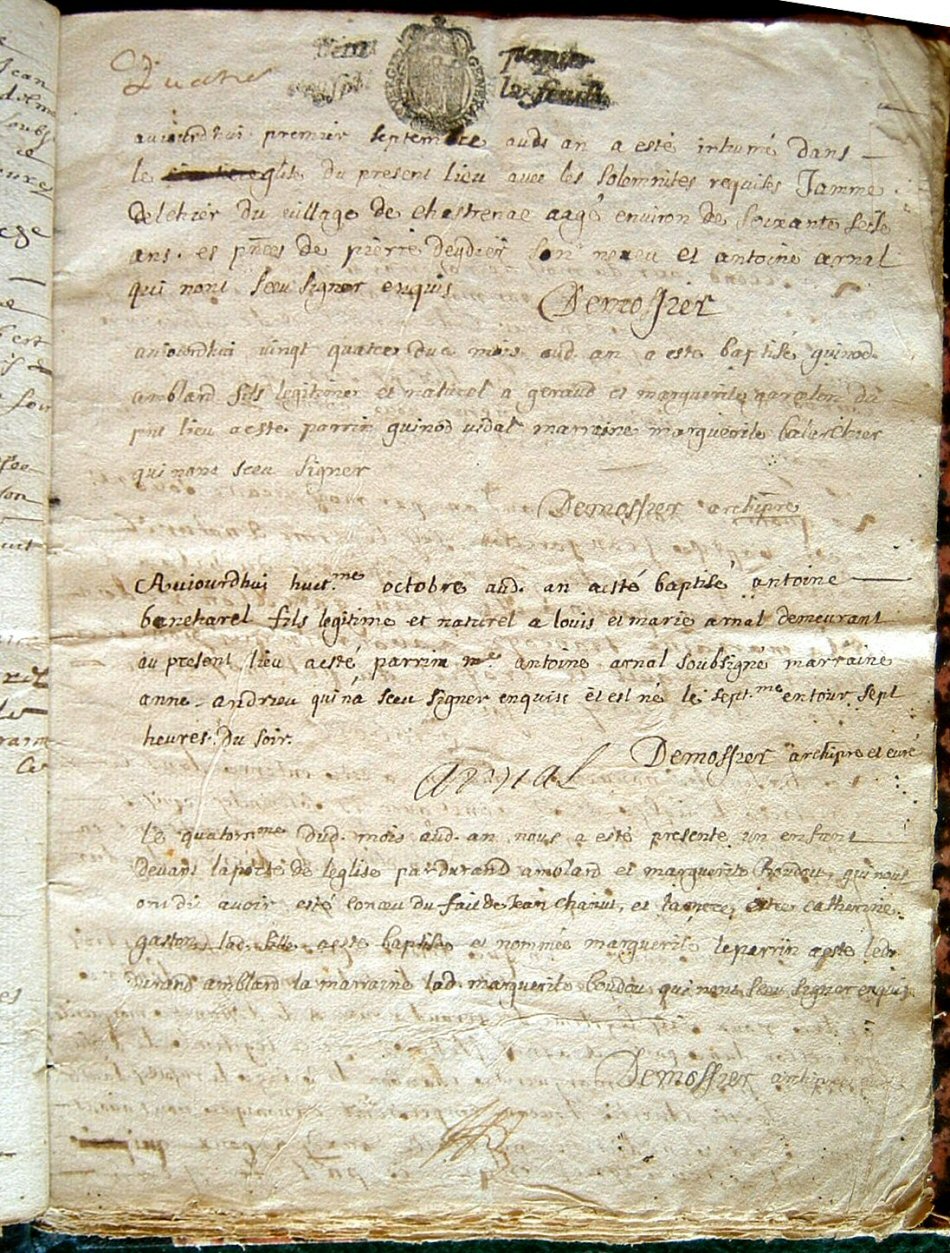 Quatre
papier
la feuille
GENERA
aujourdhui premier septembre audt an a esté inhumé dans
le du present lieu avec les solemnites requises Jamme
Delchier du village de Chastrenac aagé environ de soixante seise
ans. es pnces de pierre deydier son neveu et antoine arnal
qui nont sceu signer enquis Demossier
aujourdhui vingt quatre du mois aud. an a esté baptisé guinod
amblard fils legitime et naturel a geraud et marguerite du
pnt lieu a este parrin guinod vidal marraine marguerite
qui nont sceu signer
Demossier archipre
Aujourdhui huit.me octobre aud. an a esté baptisé antoine
bancharel fils legitime et naturel a louis et marie arnal demeurant
au present lieu a esté parrin me. antoine arnal soubsigné marraine
anne andrieu qui na sceu signer enquise et est né le sept.me entour sept
heures du soir.
Demossier archipre et curé
Arnal
Le quator.me dud. mois aud. an nous a esté presente un enfant
devant la porte de leglise par durand amblard et marguerite boudou, qui nous
ont dit avoir esté conceu du fait de Jean Chanut, et la mere, estre catherine
gaston, lad. fille a esté baptisée et nommée marguerite le parrin a este led.
durand amblard la marraine lad. marguerite boudou qui nont sceu signer enquis
Demossier archipre